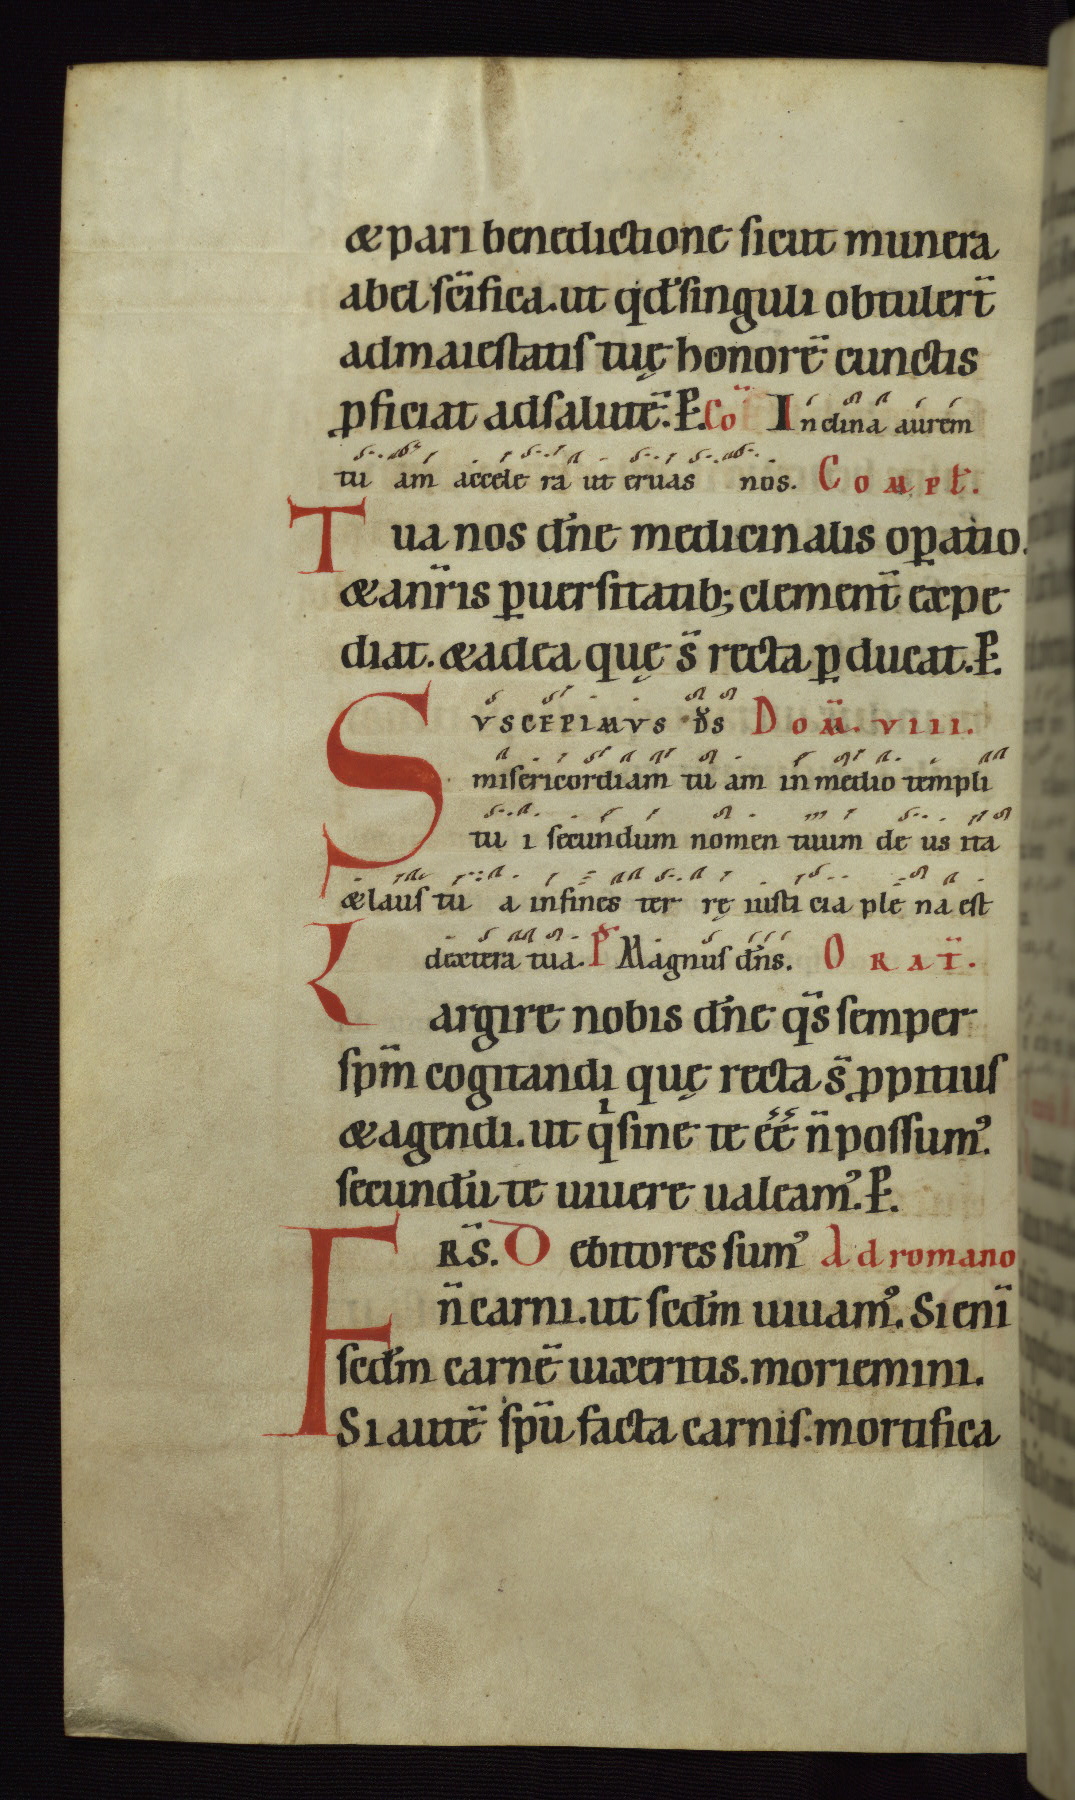 & pari benedictione sicut munera
abel sc̄ifica. ut qd̄ singuli obtuler̄t
ad maiestatis tuę honorē cunctis
ꝓficiat ad salutē. P. Cō Inclina aurem
tu am accele ra ut eruas nos. Compł.
Tua nos dn̄e medicinalis oꝑatio.
& a nr̄is ꝑuersitatib; clement̄ expe
diat. & ad ea quę s̄ recta ꝑducat. P.
Suscepimus d̄s Dom̄. VIII.
misericordiam tu am in medio templi
tu i secundum nomen tuum de us ita
& laus tu a in fines ter rę iusti cia ple na est
dextera tua. P̄ Magnus dn̄s. Orat̄.
Largire nobis dn̄e qs̄ semper
sp̄m cogitandi quę recta s̄ ꝓpitius
& agendi. ut qͥ sine te ēē n̄ possumꝰ.
secundū te uiuere ualeamꝰ. P.
FRS̄. Debitores sumꝰ Ad romano
n̄ carni. ut sedm̄ uiuamꝰ. Si eni̅
sedm̄ carnē uixeritis. moriemini.
Si autē sp̄u facta carnis. mortifica